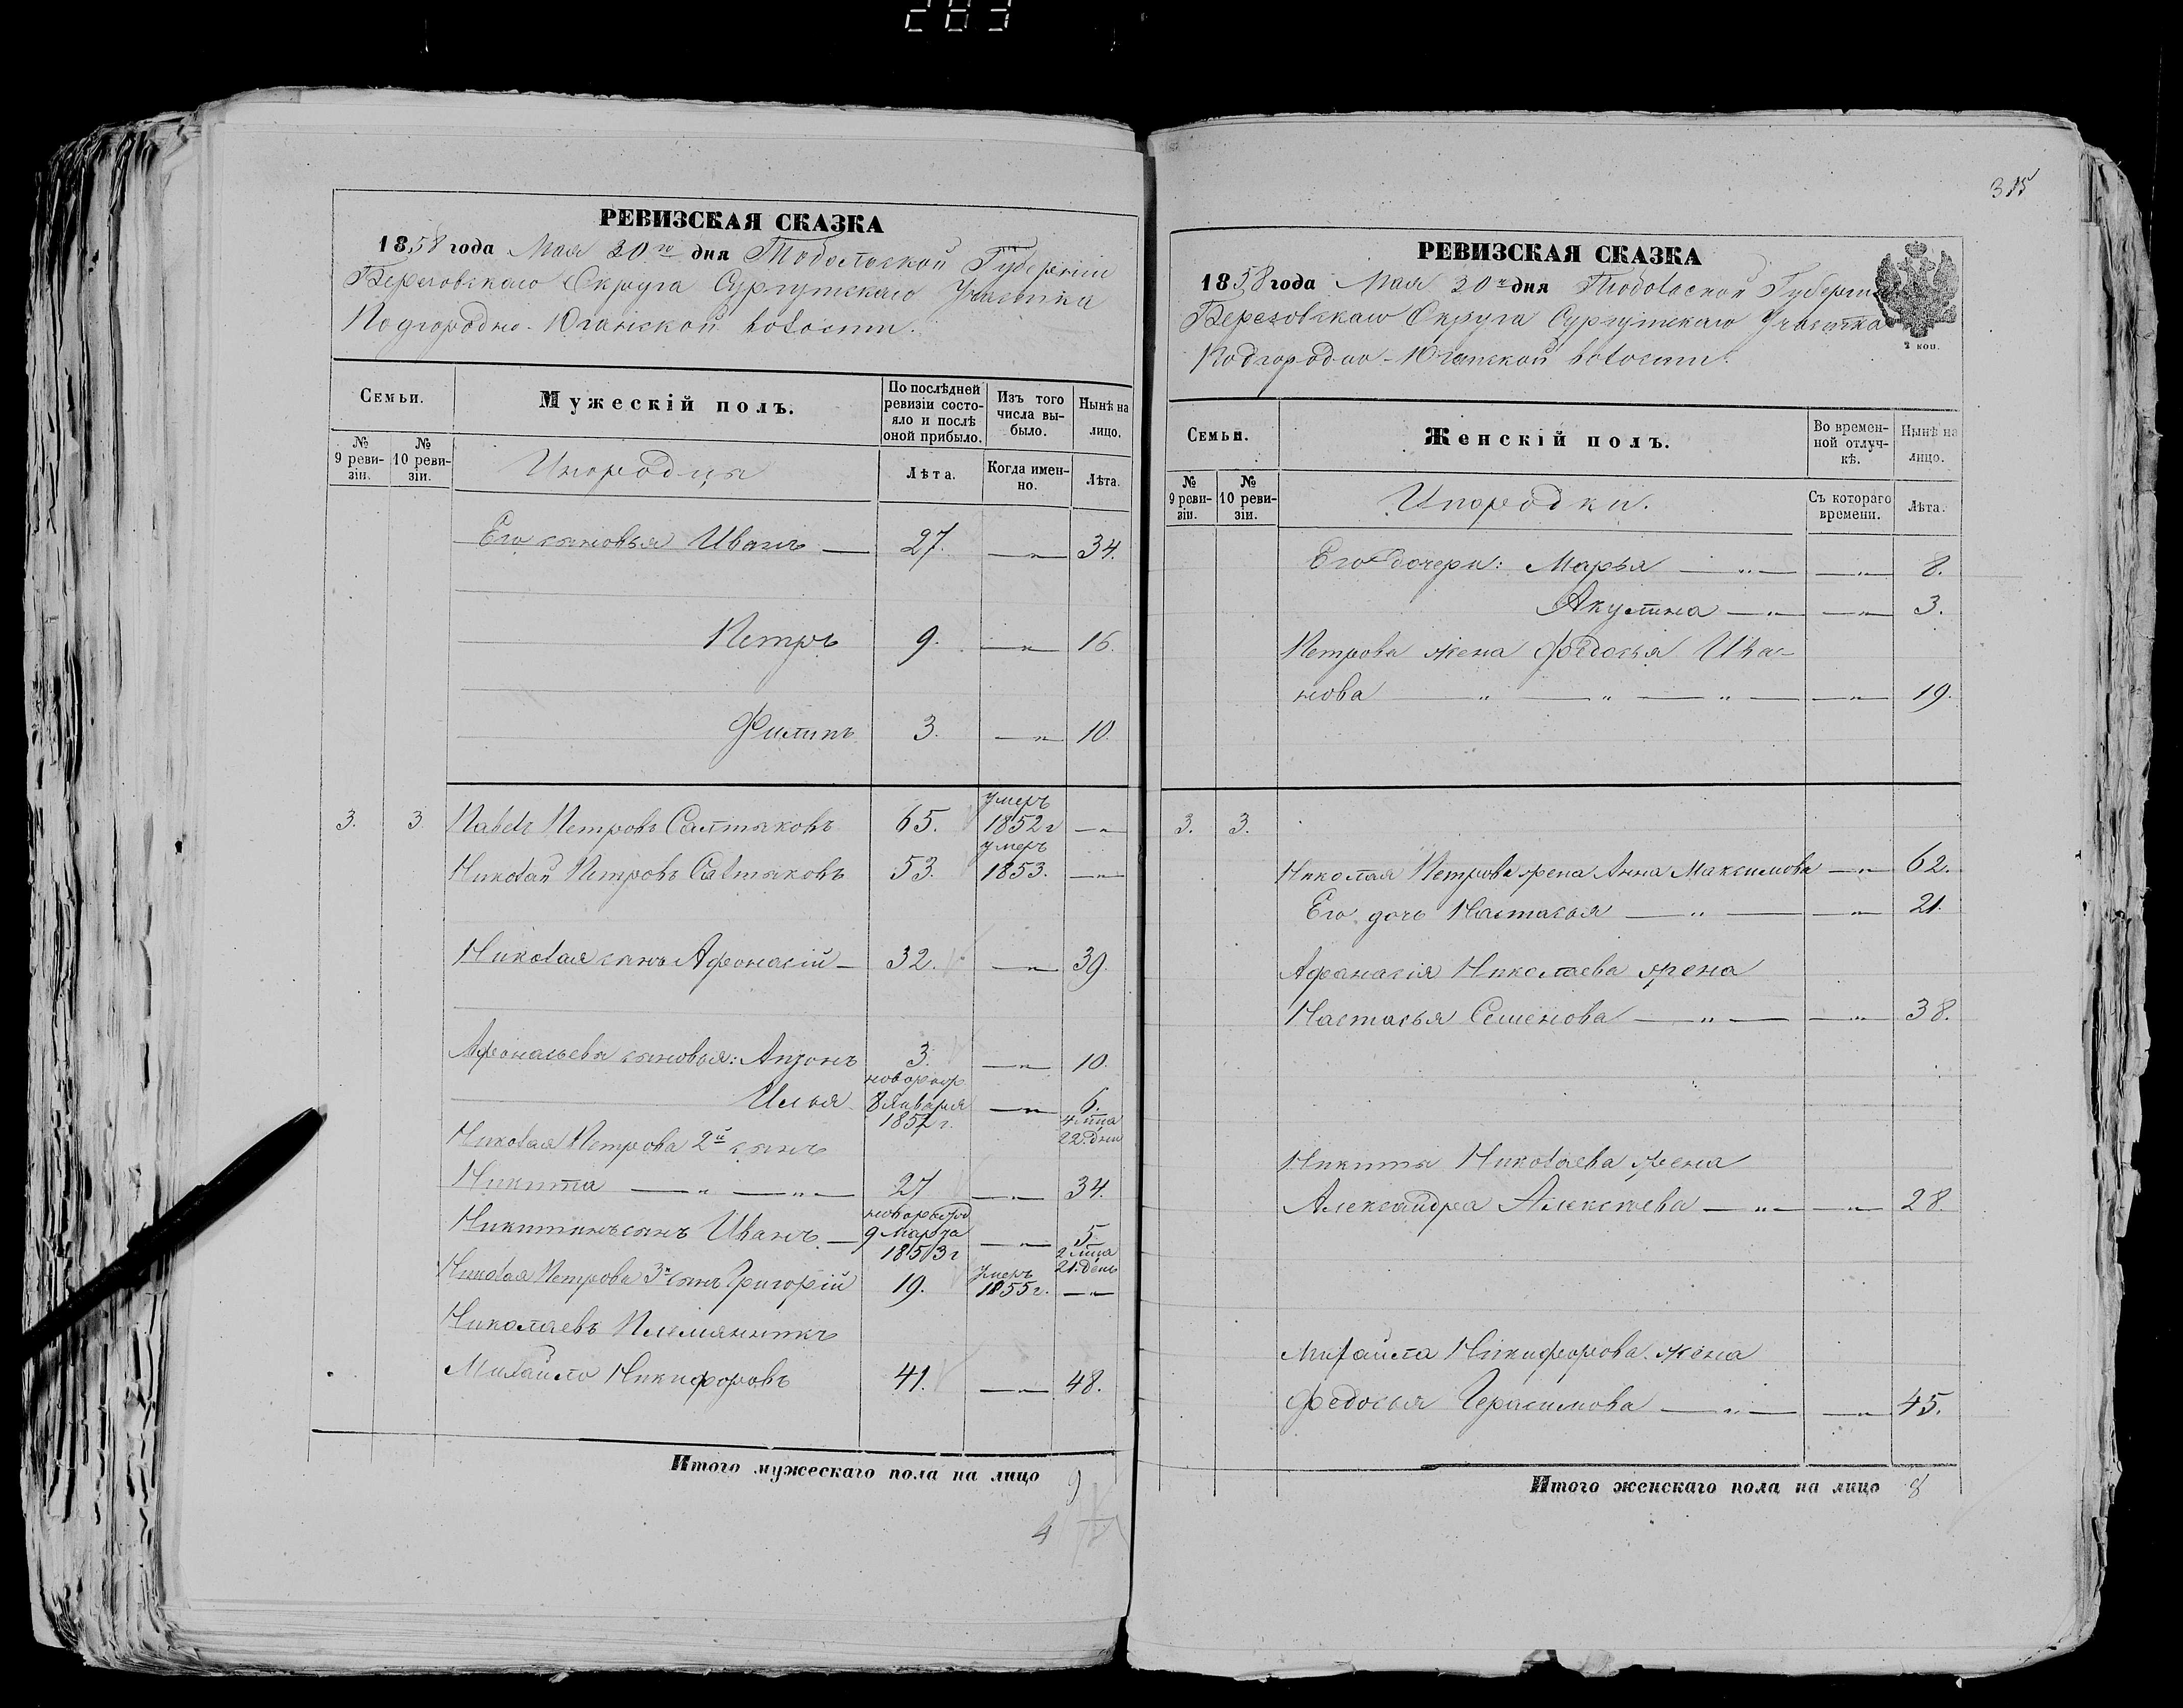 283
РЕВИЗСКАЯ СКАЗКА
1858 года Мая 30го дня Тобольской Губерніи
Березовскаго Округа Сургутскаго Участка
Подгородно-Юганской волости.
Семьи.
Мужескій полъ.
По послѣдней ревизіи состояло и послѣ оной прибыло.
Изъ того числа выбыло.
Нынѣ на лицо.
№ 9 ревизіи.
№ 10 ревизіи.
Инородцы
Лѣта.
Когда именно.
Лѣта.
Его сыновья Иванъ — 27. —„— 34.
Петръ 9. —„— 16.
Филипъ 3. —„— 10.
3. 3 Павелъ Петровъ Салтыковъ 65. умеръ 1852 г —„—
Николай Петровъ Салтыковъ 53. умеръ 1853. —„—
Николая сынъ Афонасій — 32. —„— 39.
Афонасьева сыновья: Антонъ 3. —„— 10.
Илья новорож. 8 Января 1852 г. —„— 6. 4 мца 22. дни
Николая Петрова 2й сынъ
Никита —„—„— 27 —„— 34.
Никитинъ сынъ Иванъ — новорожд 9 Марта 1853 г —„— 5. 2 мца 21. день
Николая Петрова 3й сынъ Григорій 19. умеръ 1855 г. —„—
Николаевъ Племянникъ
Михайло Никифоровъ 41. —„— 48.
Итого мужескаго пола на лицо 9
4
315
РЕВИЗСКАЯ СКАЗКА
1858 года Мая 30го дня Тобольской Губерніи
Березовскаго Округа Сургутскаго Участка
Подгородно-Юганской волости.
2 коп.
Семьи.
Женскій полъ.
Во временной отлучкѣ.
Нынѣ на лицо.
№ 9 ревизіи.
№ 10 ревизіи.
Инородки.
Съ котораго времени.
Лѣта.
Его дочери: Марья —„— —„— 8.
Акулина —„— —„— 3.
Петрова жена Федосья Ива-
нова —„—„—„— —„— 19.
3. 3.
Николая Петрова жена Анна Максимова —„— 62.
Его дочь Настасья —„— —„— 21.
Афанасія Николаева жена
Настасья Семенова —„— —„— 38.
Никиты Николаева жена
Александра Алексѣева —„— —„— 28.
Михайла Никифорова жена
Федосья Герасимова —„— —„— 45.
Итого женскаго пола на лицо 8